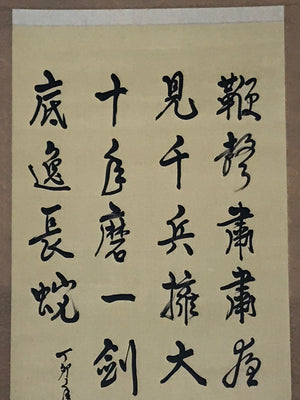 鞭聲肅肅夜
見千兵擁大
十年磨一劍
底逸長蛇
丁卯